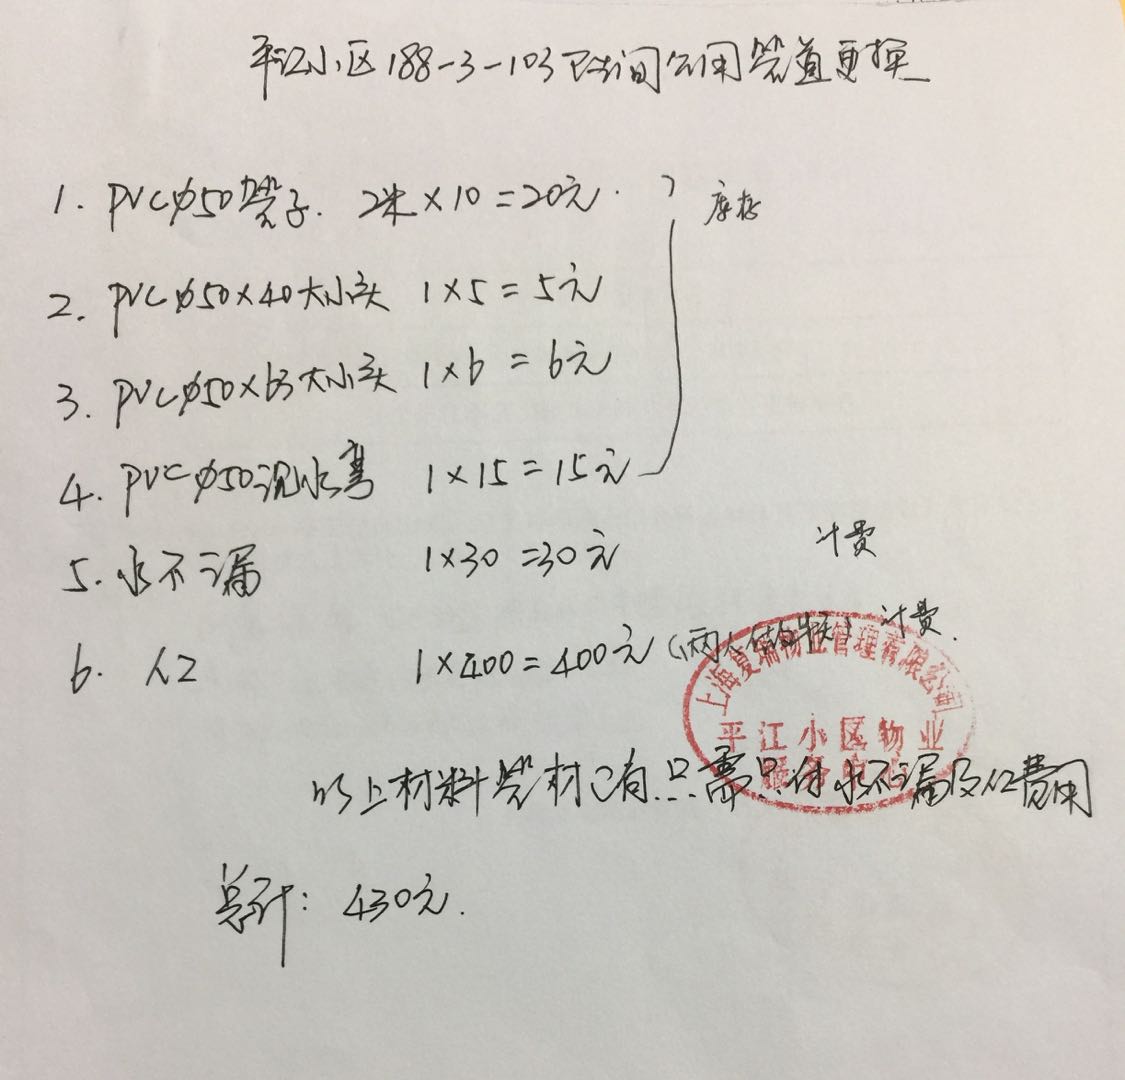 平江小区188-3-103卫生间公用管道更换
1. PVCφ50管子. 2米×10=20元. 库存
2. PVCφ50×40大小头 1×5=5元
3. PVCφ50×63大小头 1×6=6元
4. PVCφ50沉水弯 1×15=15元
5. 水不漏 1×30=30元 计费
6. 人工 1×400=400元(两人做半天) 计费.
上海夏瑞物业管理有限公司
平江小区物业
服务中心
以上材料管材已有.只需只付水不漏及人工费用
总计: 430元.